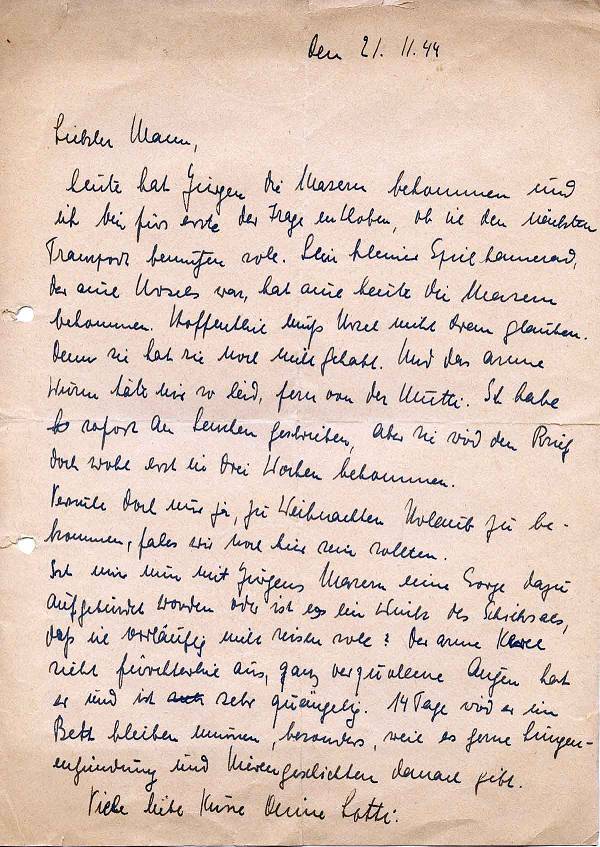 Den 21. 11. 44
Liebster Mann,
heute hat Jürgen die Masern bekommen und
ich bin fürs erste der Frage enthoben, ob ich den nächsten
Transport benutzen soll. Sein kleiner Spielkamerad,
der auch Ursels war, hat auch heute die Masern
bekommen. Hoffentlich muß Ursel nicht dran glauben.
Denn sie hat sie noch nicht gehabt. Und das arme
Wurm täte mir so leid, fern von der Mutti. Ich habe
es sofort an geschrieben, aber sie wird den Brief
doch wohl erst in drei Wochen bekommen.
Versuche doch nur ja, zu Weihnachten Urlaub zu be-
kommen, falls wir noch hier sein sollten.
Ist mir nun mit Jürgens Masern eine Sorge dazu
aufgebürdet worden oder ist es ein Wink des Schicksals,
daß ich vorläufig nicht reisen soll? Der arme Kerl
sieht fürchterlich aus, ganz verquollene Augen hat
er und ist sehr quängelig. 14 Tage wird er im
Bett bleiben müssen, besonders, weil es gerne Lungen-
entzündung und Nierengeschichten danach gibt.
Viele liebe Küsse Deine Lotti.